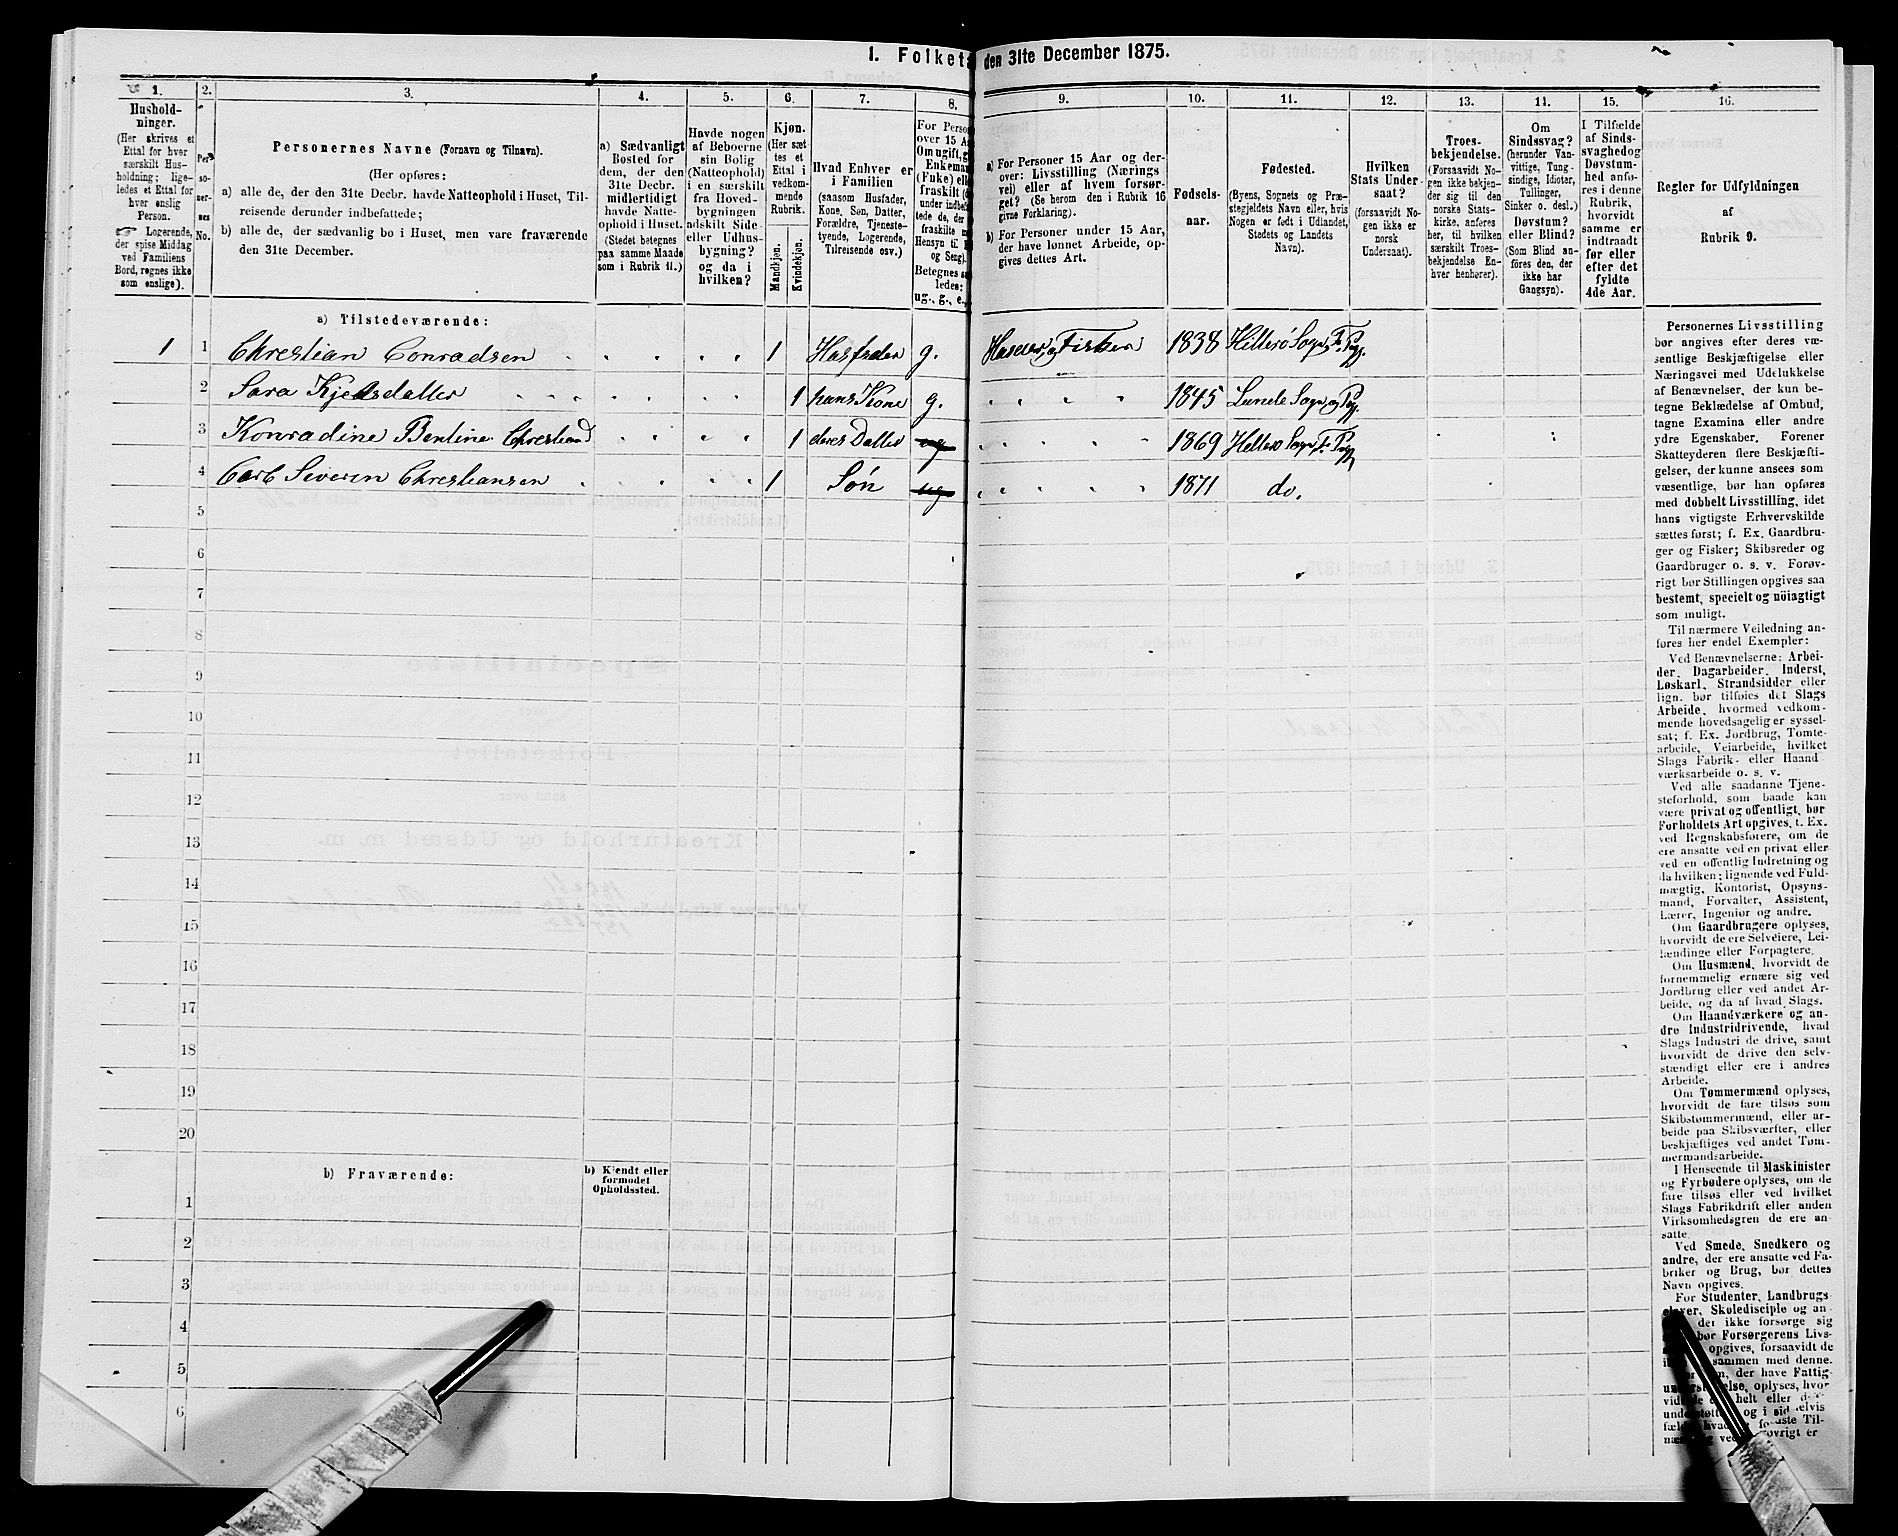 1. Folketa den 31te December 1875.
1. 2. 3. 4. 5. 6. 7. 8. 9. 10. 11. 12. 13. 14. 15. 16.
Hushold-
ninger.
(Her skrives et
Ettal for hver
særskilt Hus-
holdning; lige-
ledes et Ettal for
hver enslig
Person.
Logerende,
der spise Middag
ved Familiens
Bord, regnes ikke
som enslige).
Per-
so-
ner-
nes
No.
Personernes Navne (Fornavn og Tilnavn).
(Her opføres:
a) alle de, der den 31te Decbr. havde Natteophold i Huset, Til-
reisende derunder indbefattede;
b) alle de, der sædvanlig bo i Huset, men vare fraværende
den 31te December.
a) Sædvanligt
Bosted for
dem, der den
31te Decbr.
midlertidigt
havde Natte-
ophold i Huset.
(Stedet betegnes
paa samme Maade
som i Rubrik 11.)
Havde nogen
af Beboerne
sin Bolig
(Natteophold)
i en særskilt
fra Hoved-
bygningen
adskilt Side-
eller Udhus-
bygning?
og da i
hvilken?
Kjøn.
(Her sæt
tes et
Ettal i
vedkom-
mende
Rubrik.
Mandkjøn.
Kvindekjøn.
Hvad Enhver er
i Familien
(saasom Husfader,
Kone, Søn, Datter,
Forældre, Tjeneste-
tyende, Logerende,
Tilreisende osv.)
For Person
over 15 A
Om ugift, g
Enkeman
(Fuke) ell
fraskilt (
under indbe
tede de, der
fraskilte m
Hensyn til
og Seng).
Betegnes s
ledes:
ug., g., e.,
a) For Personer 15 Aar og der-
over: Livsstilling (Nærings
vei) eller af hvem forsør-
get? (Se herom den i Rubrik 16
givne Forklaring).
b) For Personer under 15 Aar,
der have lønnet Arbeide, op-
gives dettes Art.
Fødsels-
aar.
Fødested.
(Byens, Sognets og Præ-
stegjeldets Navn eller, hvis
Nogen er født i Udlandet,
Stedets og Landets
Navn).
Hvilken
Stats Under-
saat?
(forsaavidt No-
gen ikke er
norsk
Undersaat).
Troes-
bekjendelse.
(Forsaavidt No-
gen ikke bekjen-
der sig til den
norske Stats-
kirke, anføres
her, til hvilken
særskilt Troes-
bekjendelse En-
hver henhører).
Om
Sindssvag?
(herunder Van-
vittige, Tung-
sindige, Idioter,
Tullinger,
Sinker o. desl.)
Døvstum?
eller Blind?
(Som Blind an-
føres den, der
ikke har
Gangsyn).
I Tilfælde
af Sinds-
svaghed og
Døvstum-
hed anfø-
res i denne
Rubrik,
hvorvidt
samme er
indtraadt
før eller
efter det
fyldte
4de Aar.
Regler for Udfyldningen
af
Rubrik 9.
a) Tilstedeværende:
1 1 Christian Conradsen 1 Husfader g. og Fisker 1838 Hitterø Sogn F. Pgj.
2 Sara Kjelsdatter 1 hans Kone g. 1845 Lunde Sogn og Pgj.
3 Konradine Bentine Christiand 1 deres Datter ug 1869 Hitterø Sogn F. Pgj
4 Carl Severin Christiansen 1 Søn ug 1871 do.
5
6
7
8
9
10
11
12
13
14
15
16
17
18
19
20
b) Fraværende:
b) Kjendt eller
formodet
Opholdssted.
1
2
3
4
5
6
Personernes Livsstilling
bør angives efter deres væ-
sentlige Beskjæftigelse eller
Næringsvei med Udelukkelse
af Benævnelser, der kun be-
tegne Beklædelse af Ombud,
tagne Examina eller andre
ydre Egenskaber. Forener
Skatteyderen flere Beskjæfti-
gelser, der kunne ansees som
væsentlige, bør han opføres
med dobbelt Livsstilling, idet
hans vigtigste Erhvervskilde
sættes først; f. Ex. Gaardbru-
ger og Fisker; Skibsreder og
Gaardbruger o. s. v. Forøv-
rigt bør Stillingen opgives saa
bestemt, specielt og nöiagtigt
som muligt.
Til nærmere Veiledning an-
føres her endel Exempler:
Ved Benævnelserne: Arbei-
der, Dagarbeider, Inderst,
Løskarl, Strandsidder eller
lign. bør tilføies det Slags
Arbeide, hvormed vedkom-
mende hovedsagelig er syssel-
sat; f. Ex. Jordbrug, Tomte-
arbeide, Veiarbeide, hvilket
Slags Fabrik- eller Haand
værksarbeide o. s. v.
Ved alle saadanne Tjene-
steforhold, som baade kan
være privat og offentligt, bør
Forholdets Art opgives, f. Ex.
ved Regnskabsførere, om de
ere ansatte ved en privat eller
ved en offentlig Indretning og
da hvilken; lignende ved Fuld-
mægtig, Kontorist, Opsyns-
mand, Forvalter, Assistent,
Lærer, Ingeniør og andre.
Om Gaardbrugere oplyses,
hvorvidt de ere Selveiere, Lei-
lændinge eller Forpagtere.
Om Husmænd, hvorvidt de
fornemmelig ernære sig ved
Jordbrug eller ved andet Ar-
beide, og da af hvad Slags.
Om Haandværkere og an-
dre Industridrivende, hvad
Slags Industri de drive, samt
hvorvidt de drive den selv-
stændigt eller ere i andres
Arbeide.
Om Tømmermænd oplyses,
hvorvidt de fare tilsøs som
Skibstømmermænd, eller ar-
beide paa Skibsværfter, eller
beskjæftiges ved andet Tøm-
mermandsarbeide.
I Henseende til Maskinister
og Fyrbødere oplyses, om de
fare tilsøs eller ved hvilket
Slags Fabrikdrift eller anden
Virksomhedsgren de ere an-
satte.
Ved Smede, Snedkere og
andre, der ere ansatte ved Fa-
briker og Brug, bør dettes
Navn opgives.
For Studenter, Landbrugs
elever, Skoledisciple og an-
det ikke forsørge sig
bør Forsørgerens Livs-
opgives, forsaavidt de
sammen med denne.
der have Fattig-
oplyses, hvor
helt eller
og i